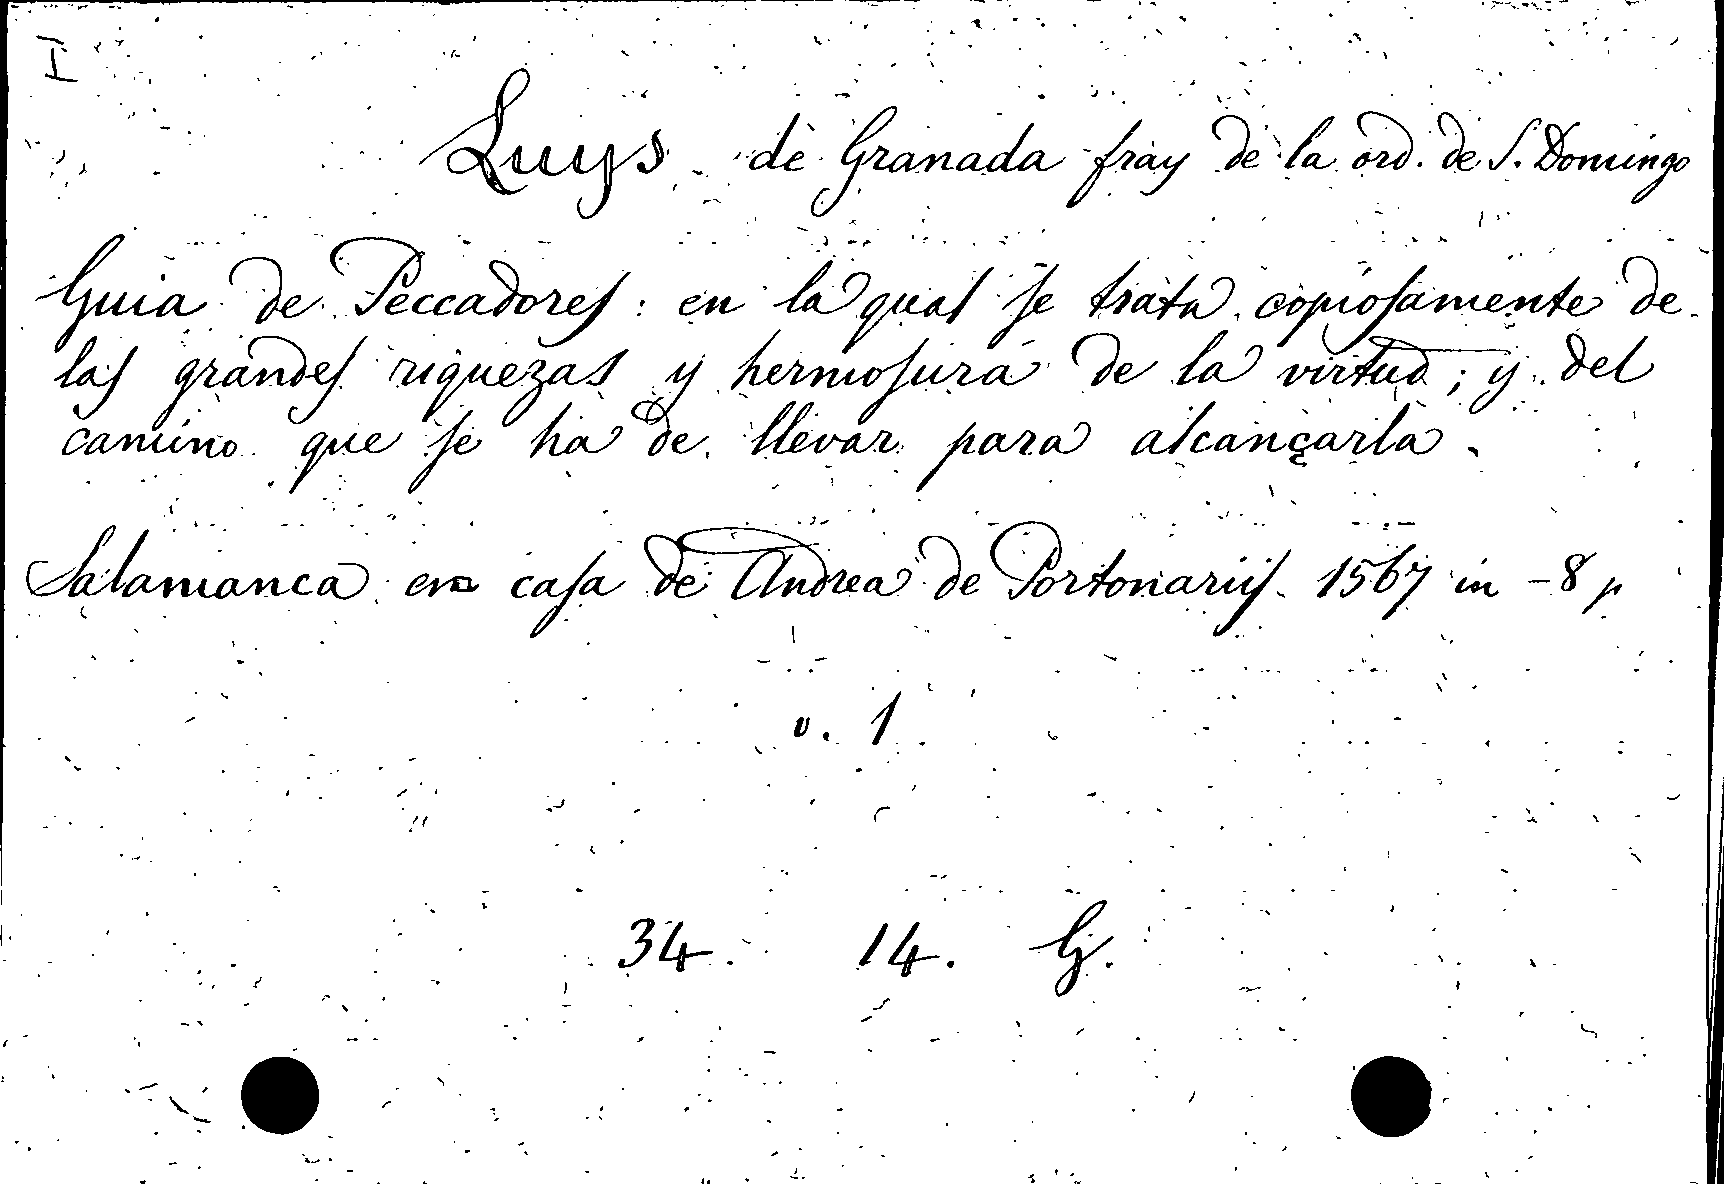 I
Luys de Granada fray de la ord. de S. Domingo
Guia de Peccadores: en la qual se trata copiosamente de
las grandes riquezas y hermosura de la virtud; y del
camino que se ha de llevar para alcançarla.
Salamanca en casa de Andrea de Portonariis. 1567 in -8 p
v. 1
34. 14. G.